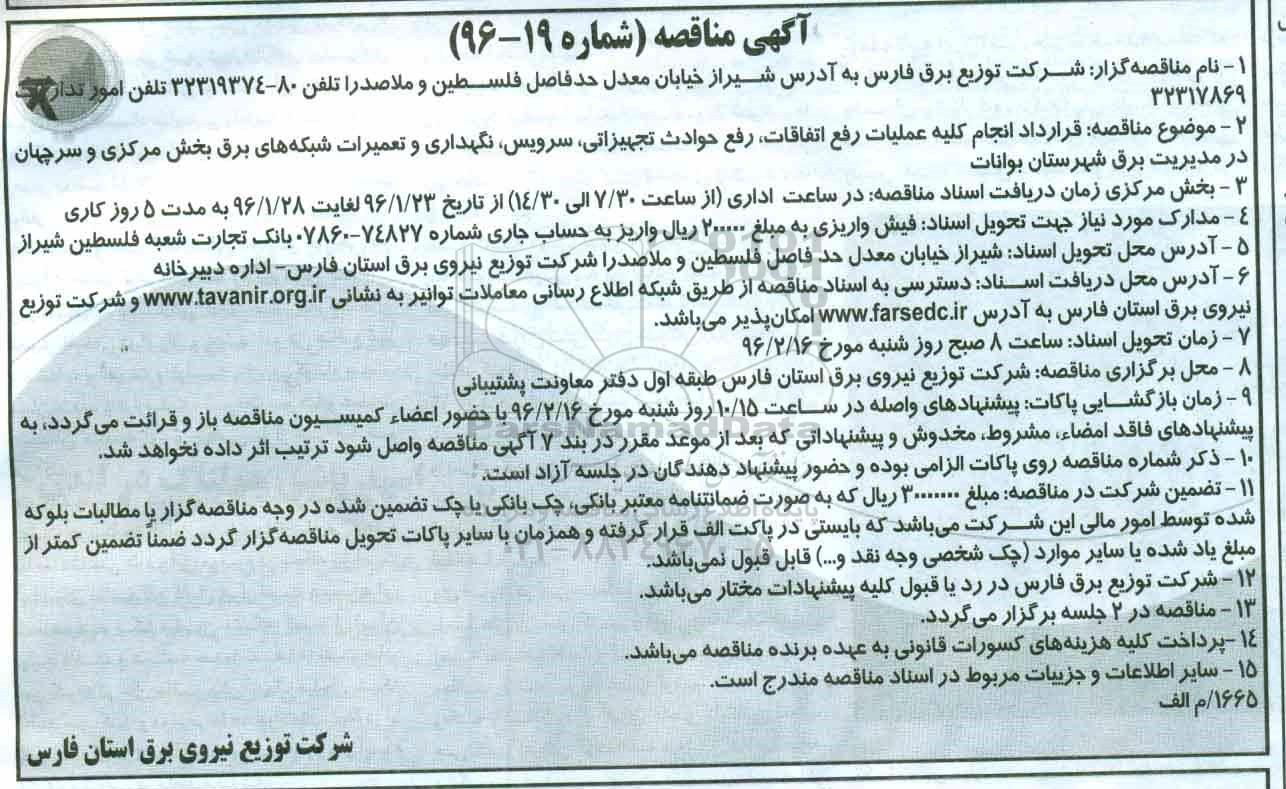 آگهی مناقصه (شماره ۱۹-۹۶)
۱- نام مناقصه‌گزار: شرکت توزیع برق فارس به آدرس شیراز خیابان معدل حدفاصل فلسطین و ملاصدرا تلفن ۸۰-۳۲۳۱۹۳۷۴ تلفن امور تدارکات
۳۲۳۱۷۸۶۹
۲- موضوع مناقصه: قرارداد انجام کلیه عملیات رفع اتفاقات، رفع حوادث تجهیزاتی، سرویس، نگهداری و تعمیرات شبکه‌های برق بخش مرکزی و سرچهان
در مدیریت برق شهرستان بوانات
۳- بخش مرکزی زمان دریافت اسناد مناقصه: در ساعت اداری (از ساعت ۷/۳۰ الی ۱۴/۳۰) از تاریخ ۹۶/۱/۲۳ لغایت ۹۶/۱/۲۸ به مدت ۵ روز کاری
۴- مدارک مورد نیاز جهت تحویل اسناد: فیش واریزی به مبلغ ۲۰۰۰۰۰ ریال واریز به حساب جاری شماره ۷۴۸۲۷-۰۷۸۶۰ بانک تجارت شعبه فلسطین شیراز
۵- آدرس محل تحویل اسناد: شیراز خیابان معدل حد فاصل فلسطین و ملاصدرا شرکت توزیع نیروی برق استان فارس- اداره دبیرخانه
۶- آدرس محل دریافت اسناد: دسترسی به اسناد مناقصه از طریق شبکه اطلاع رسانی معاملات توانیر به نشانی www.tavanir.org.ir و شرکت توزیع
نیروی برق استان فارس به آدرس www.farsedc.ir امکان‌پذیر می‌باشد.
۷- زمان تحویل اسناد: ساعت ۸ صبح روز شنبه مورخ ۹۶/۲/۱۶
۸- محل برگزاری مناقصه: شرکت توزیع نیروی برق استان فارس طبقه اول دفتر معاونت پشتیبانی
۹- زمان بازگشایی پاکات: پیشنهادهای واصله در ساعت ۱۰/۱۵ روز شنبه مورخ ۹۶/۲/۱۶ با حضور اعضاء کمیسیون مناقصه باز و قرائت می‌گردد، به
پیشنهادهای فاقد امضاء، مشروط، مخدوش و پیشنهاداتی که بعد از موعد مقرر در بند ۷ آگهی مناقصه واصل شود ترتیب اثر داده نخواهد شد.
۱۰- ذکر شماره مناقصه روی پاکات الزامی بوده و حضور پیشنهاد دهندگان در جلسه آزاد است.
۱۱- تضمین شرکت در مناقصه: مبلغ ۳۰۰۰۰۰۰۰ ریال که به صورت ضمانتنامه معتبر بانکی، چک بانکی یا چک تضمین شده در وجه مناقصه‌گزار یا مطالبات بلوکه
شده توسط امور مالی این شرکت می‌باشد که بایستی در پاکت الف قرار گرفته و همزمان با سایر پاکات تحویل مناقصه‌گزار گردد ضمناً تضمین کمتر از
مبلغ یاد شده یا سایر موارد (چک شخصی وجه نقد و...) قابل قبول نمی‌باشد.
۱۲- شرکت توزیع برق فارس در رد یا قبول کلیه پیشنهادات مختار می‌باشد.
۱۳- مناقصه در ۲ جلسه برگزار می‌گردد.
۱۴- پرداخت کلیه هزینه‌های کسورات قانونی به عهده برنده مناقصه می‌باشد.
۱۵- سایر اطلاعات و جزییات مربوط در اسناد مناقصه مندرج است.
۱۶۶۵/م الف
شرکت توزیع نیروی برق استان فارس
ParsNamadData